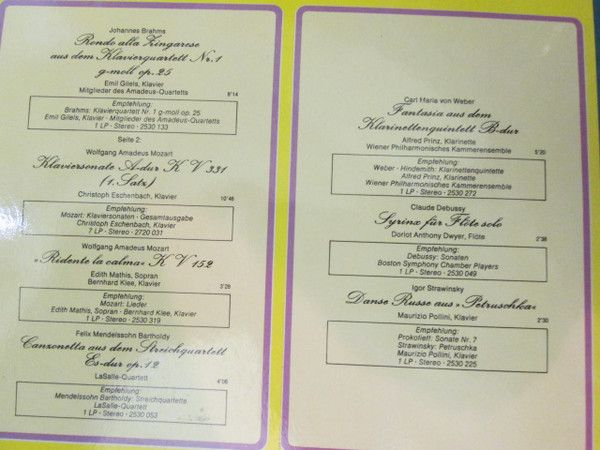 Johannes Brahms
Rondo alla Zingarese
aus dem Klavierquartett Nr. 1
g-moll op. 25
Emil Gilels, Klavier
Mitglieder des Amadeus-Quartetts
8'14
Empfehlung:
Brahms: Klavierquartett Nr. 1 g-moll op. 25
Emil Gilels, Klavier · Mitglieder des Amadeus-Quartetts
1 LP · Stereo · 2530 133
Seite 2:
Wolfgang Amadeus Mozart
Klaviersonate A-dur KV 331
(1. Satz)
Christoph Eschenbach, Klavier
10'46
Empfehlung:
Mozart: Klaviersonaten · Gesamtausgabe
Christoph Eschenbach, Klavier
7 LP · Stereo · 2720 031
Wolfgang Amadeus Mozart
»Ridente la calma« KV 152
Edith Mathis, Sopran
Bernhard Klee, Klavier
3'28
Empfehlung:
Mozart: Lieder
Edith Mathis, Sopran · Bernhard Klee, Klavier
1 LP · Stereo · 2530 319
Felix Mendelssohn Bartholdy
Canzonetta aus dem Streichquartett
Es-dur op. 12
LaSalle-Quartett
4'06
Empfehlung:
Mendelssohn Bartholdy: Streichquartette
LaSalle-Quartett
1 LP · Stereo · 2530 053
Carl Maria von Weber
Fantasia aus dem
Klarinettenquintett B-dur
Alfred Prinz, Klarinette
Wiener Philharmonisches Kammerensemble
5'20
Empfehlung:
Weber · Hindemith: Klarinettenquintette
Alfred Prinz, Klarinette
Wiener Philharmonisches Kammerensemble
1 LP · Stereo · 2530 272
Claude Debussy
Syrinx für Flöte solo
Doriot Anthony Dwyer, Flöte
2'38
Empfehlung:
Debussy: Sonaten
Boston Symphony Chamber Players
1 LP · Stereo · 2530 049
Igor Strawinsky
Danse Russe aus »Petruschka«
Maurizio Pollini, Klavier
2'30
Empfehlung:
Prokofieff: Sonate Nr. 7
Strawinsky: Petruschka
Maurizio Pollini, Klavier
1 LP · Stereo · 2530 225